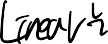 Linear ½